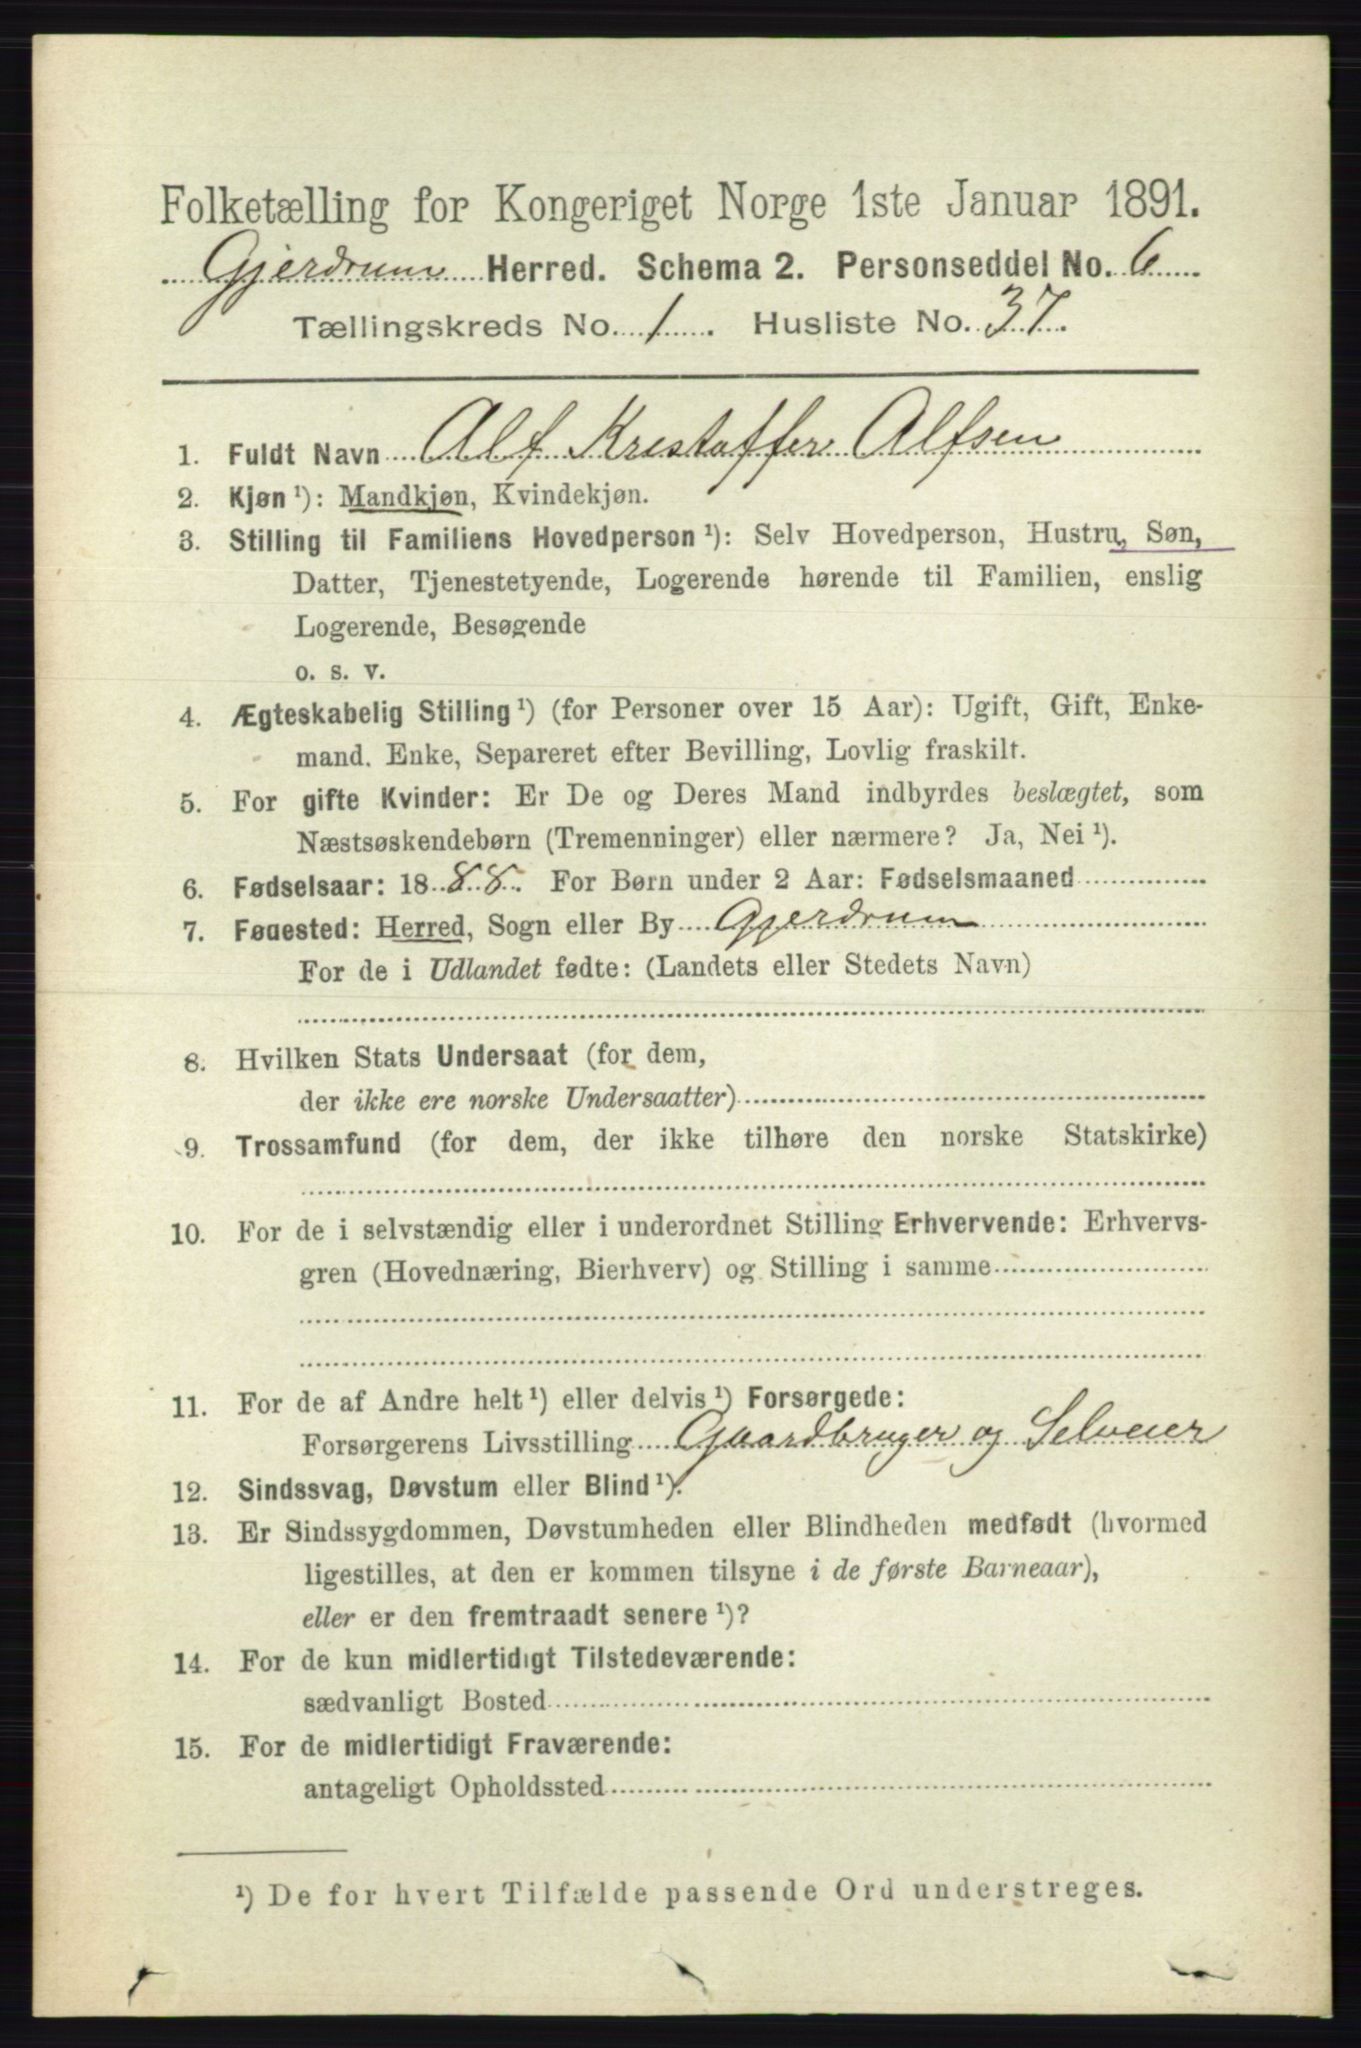 Folketælling for Kongeriget Norge 1ste Januar 1891.
Gjerdrum Herred. Schema 2. Personseddel No. 6
Tællingskreds No. 1. Husliste No. 37.
1. Fuldt Navn Alf Kristoffer Alfsen
2. Kjøn ¹): Mandkjøn, Kvindekjøn.
3. Stilling til Familiens Hovedperson ¹): Selv Hovedperson, Hustru, Søn,
Datter, Tjenestetyende, Logerende hørende til Familien, enslig
Logerende, Besøgende
o. s. v.
4. Ægteskabelig Stilling ¹) (for Personer over 15 Aar): Ugift, Gift, Enke-
mand. Enke, Separeret efter Bevilling, Lovlig fraskilt.
5. For gifte Kvinder: Er De og Deres Mand indbyrdes beslægtet, som
Næstsøskendebørn (Tremenninger) eller nærmere? Ja, Nei ¹).
6. Fødselsaar: 1888. For Børn under 2 Aar: Fødselsmaaned
7. Fødested: Herred, Sogn eller By Gjerdrum
For de i Udlandet fødte: (Landets eller Stedets Navn)
8. Hvilken Stats Undersaat (for dem,
der ikke ere norske Undersaatter)
9. Trossamfund (for dem, der ikke tilhøre den norske Statskirke)
10. For de i selvstændig eller i underordnet Stilling Erhvervende: Erhvervs-
gren (Hovednæring, Bierhverv) og Stilling i samme
11. For de af Andre helt ¹) eller delvis ¹) Forsørgede:
Forsørgerens Livsstilling Gaardbruger og Selveier
12. Sindssvag, Døvstum eller Blind ¹).
13. Er Sindssygdommen, Døvstumheden eller Blindheden medfødt (hvormed
ligestilles, at den er kommen tilsyne i de første Barneaar),
eller er den fremtraadt senere ¹)?
14. For de kun midlertidigt Tilstedeværende:
sædvanligt Bosted
15. For de midlertidigt Fraværende:
antageligt Opholdssted
¹) De for hvert Tilfælde passende Ord understreges.